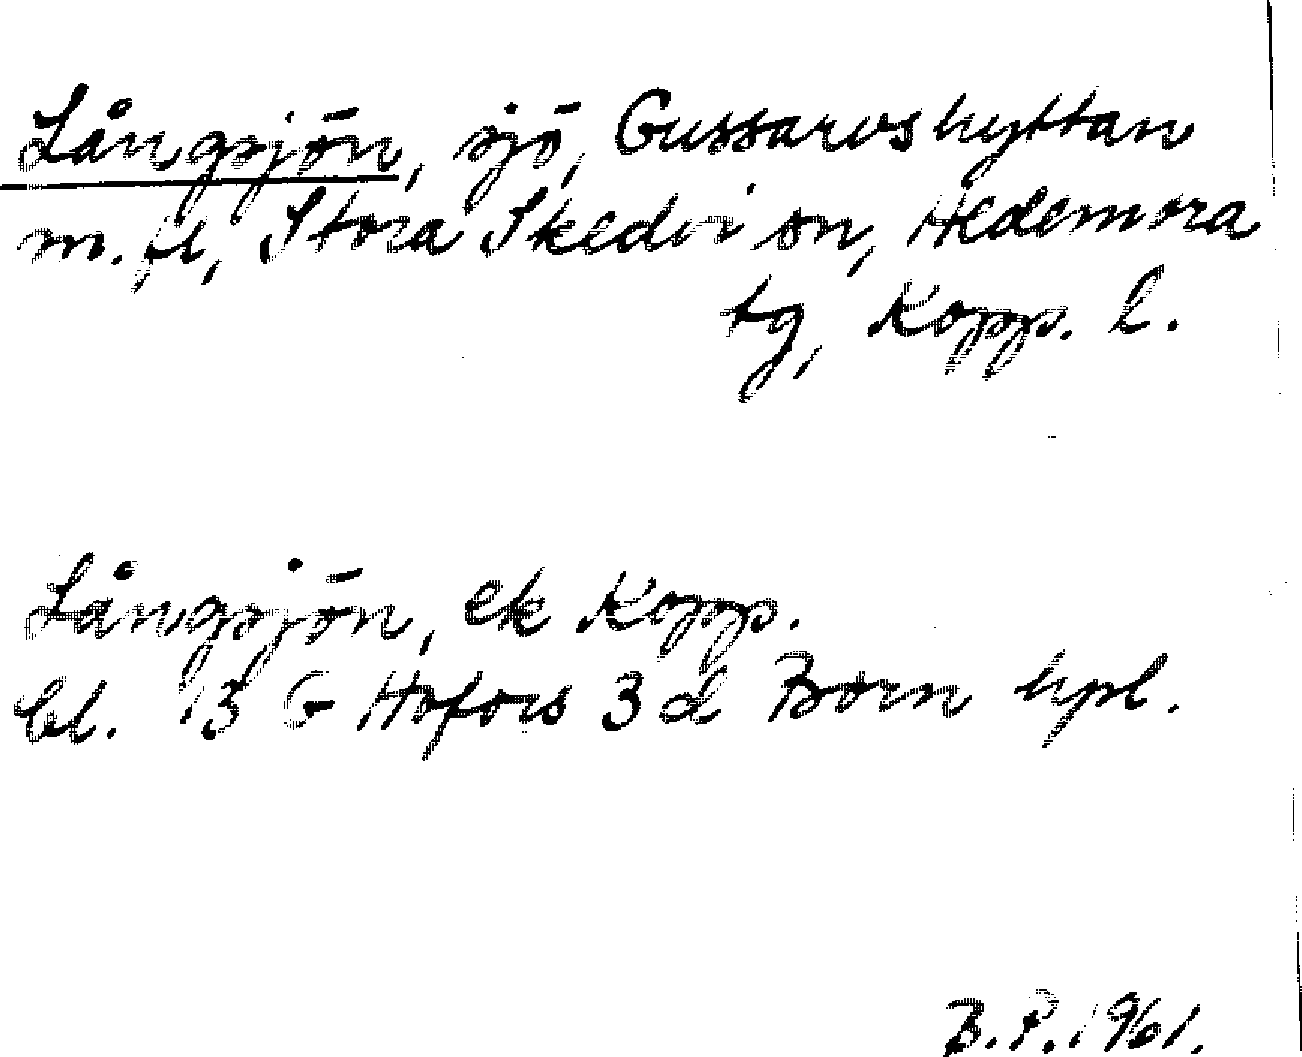 Långsjön, sjö, Gussarvshyttan
m.fl., Stora Skedvi sn, Hedemora
tg, Kopp. l.
Långsjön, ek Kopp.
bl. 13 G Hofors 3 d Born hpl.
B.P. 1961.